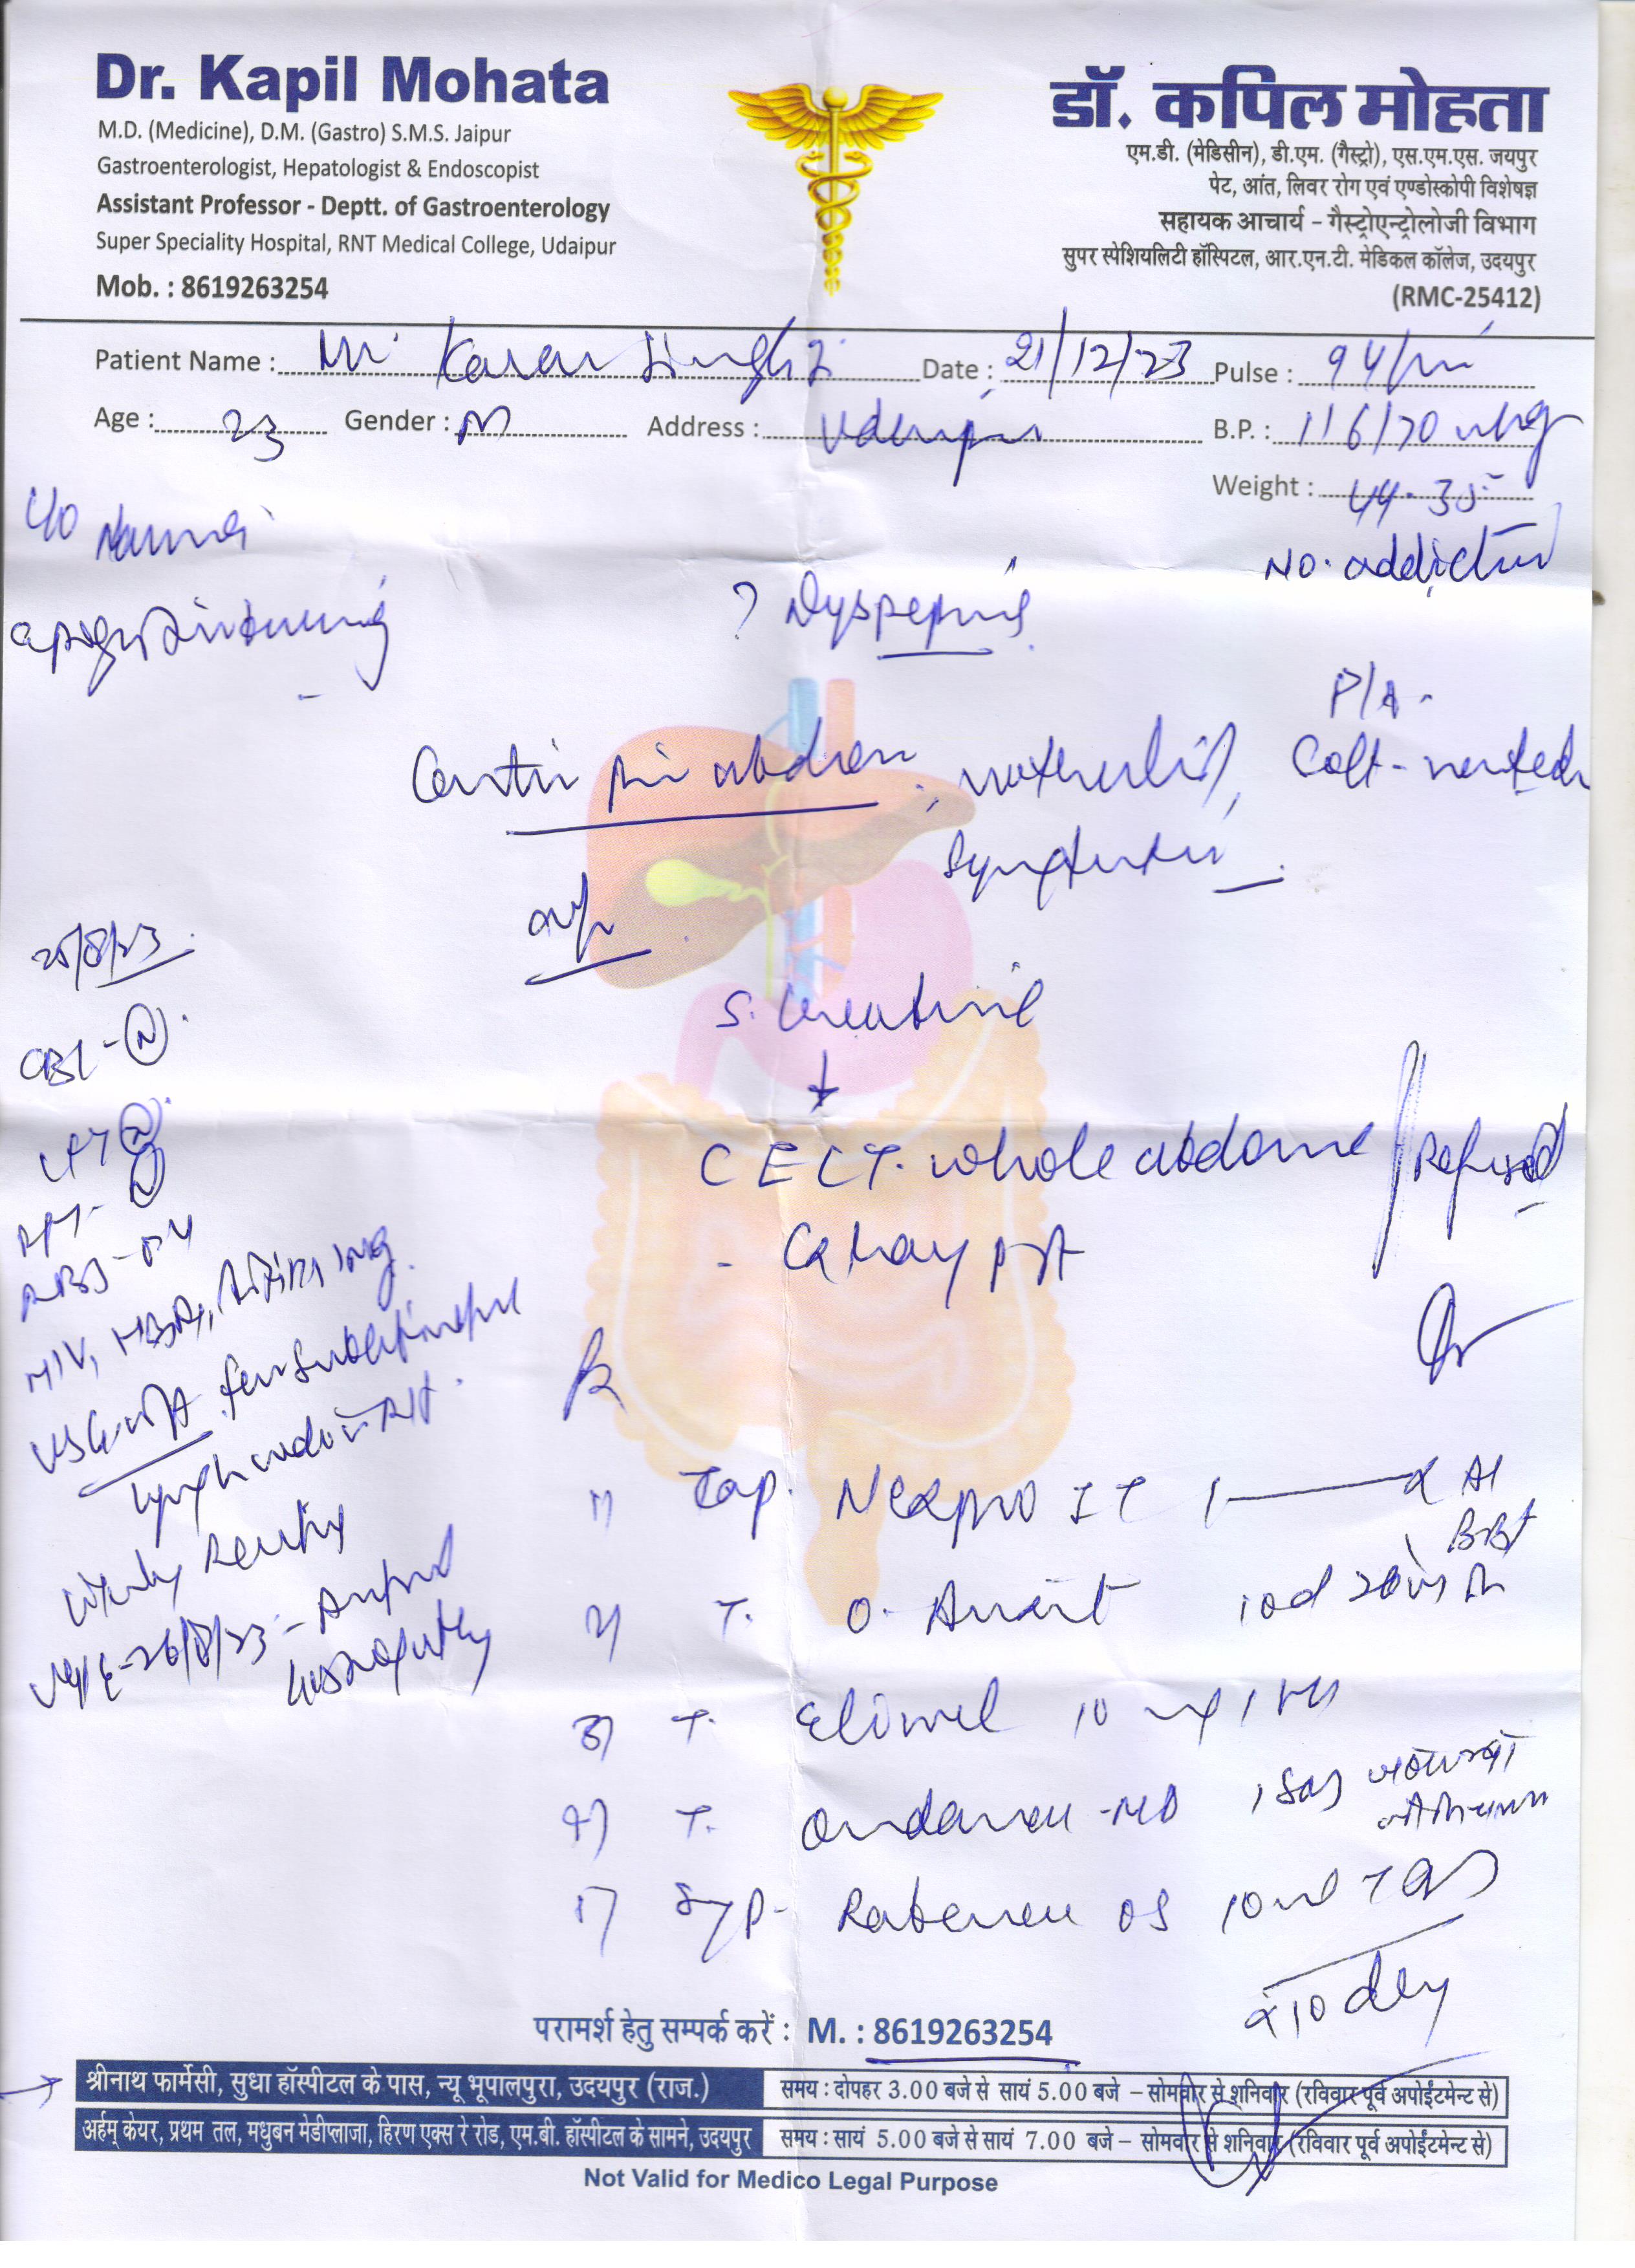 Dr. Kapil Mohata
M.D. (Medicine), D.M. (Gastro) S.M.S. Jaipur
Gastroenterologist, Hepatologist & Endoscopist
Assistant Professor - Deptt. of Gastroenterology
Super Speciality Hospital, RNT Medical College, Udaipur
Mob. : 8619263254
डॉ. कपिल मोहता
एम.डी. (मेडिसीन), डी.एम. (गैस्ट्रो), एस.एम.एस. जयपुर
पेट, आंत, लिवर रोग एवं एण्डोस्कोपी विशेषज्ञ
सहायक आचार्य - गैस्ट्रोएन्ट्रोलोजी विभाग
सुपर स्पेशियलिटी हॉस्पिटल, आर.एन.टी. मेडिकल कॉलेज, उदयपुर
(RMC-25412)
Patient Name : Mr Karan Singh Ji Date : 21/12/23 Pulse : 94/min
Age : 23 Gender : M Address : Udaipur B.P. : 116/70 mmHg
Weight : 44.30
C/O Nausea
No. addiction
? Dyspepsia
P/A -
pain abdomen, Soft - nontender
Symptoms
Adv
25/8/23
S. Creatinine
CBC - (N)
CECT. whole abdomen / Refused
LFT (N)
RFT - (N)
- CX Ray PA
RBS - 84
HIV, HBsAg,
USG W/A few subcentimetric
lymph node in RIF.
Rx
1) Cap. Nexpro IT 1 AC
BBF
UGIE - 26/8/23 - Antral
Gastropathy
2) T. O. 1 od
3) T. Eliwel 10 mg 1 HS
4) T. Ondanew - MD 1 SOS
5) Syp. Rabenew OS 10 ml TDS
x 10 day
परामर्श हेतु सम्पर्क करें : M. : 8619263254
श्रीनाथ फार्मेसी, सुधा हॉस्पीटल के पास, न्यू भूपालपुरा, उदयपुर (राज.) समय : दोपहर 3.00 बजे से सायं 5.00 बजे - सोमवार से शनिवार (रविवार पूर्व अपोईंटमेन्ट से)
अर्हम् केयर, प्रथम तल, मधुबन मेडीप्लाजा, हिरण एक्स रे रोड, एम.बी. हॉस्पीटल के सामने, उदयपुर समय : सायं 5.00 बजे से सायं 7.00 बजे - सोमवार से शनिवार (रविवार पूर्व अपोईंटमेन्ट से)
Not Valid for Medico Legal Purpose